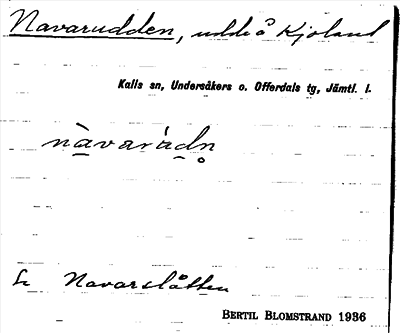 Navarudden, udde å Kjoland
Kalls sn, Undersåkers o. Offerdals tg, Jämtl. l.
nàvarùdn̥
Navarslåtten
BERTIL BLOMSTRAND 1936